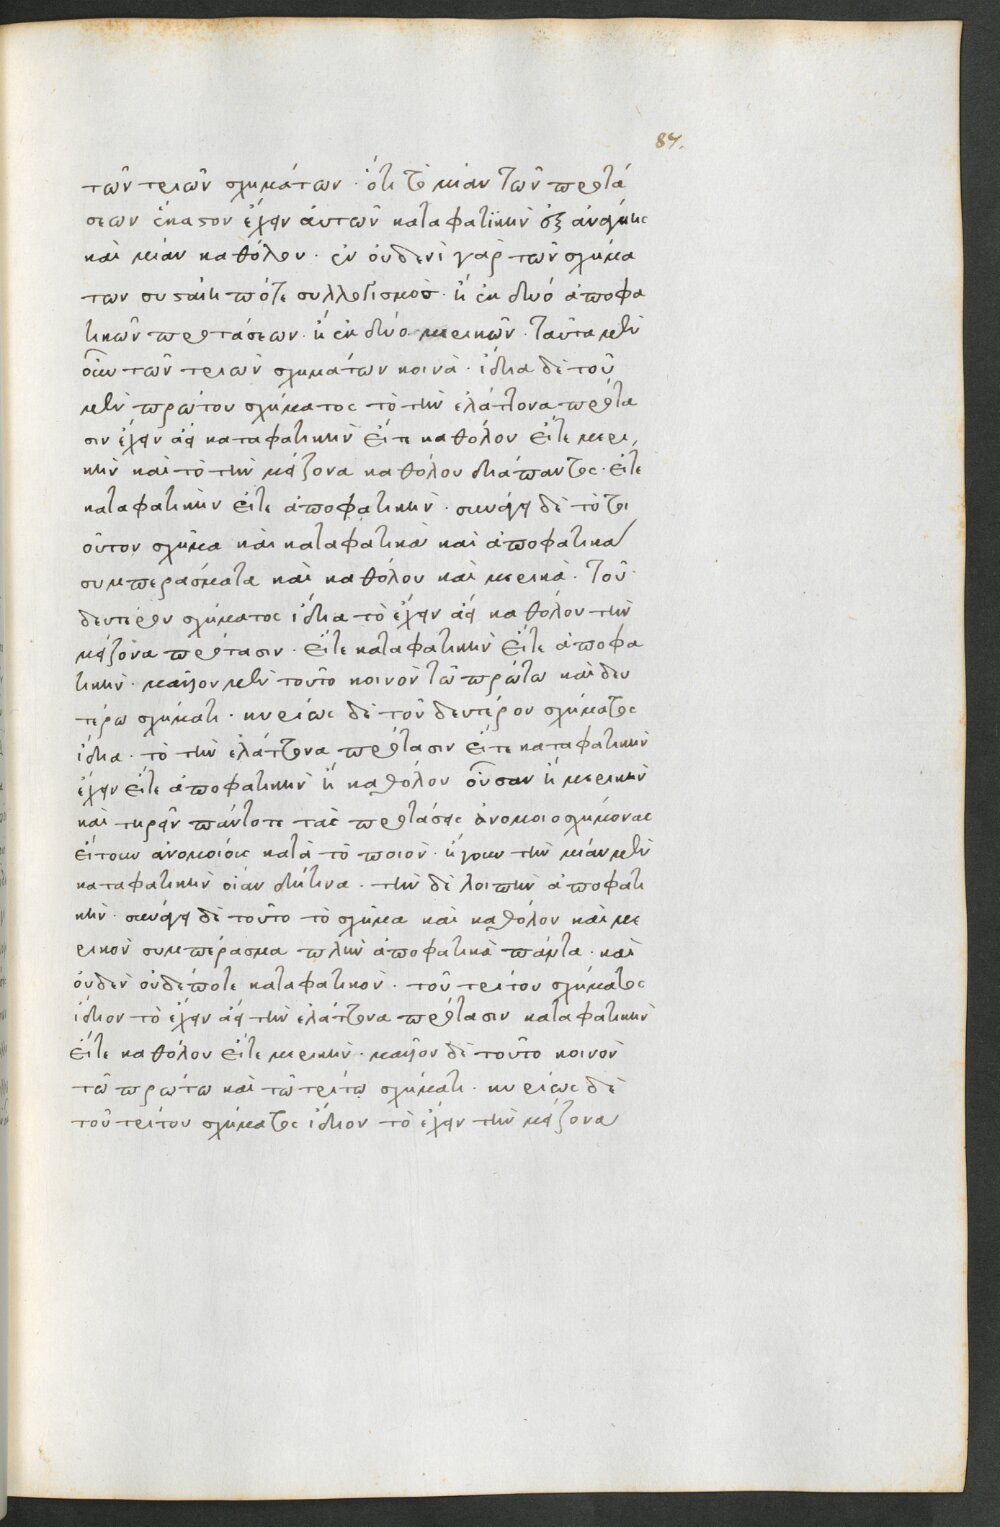 87.
τῶν τριῶν σχημάτων · ὅτι τὸ μίαν τῶν προτά
σεων ἕκαστον ἔχειν ἀυτῶν καταφατικὴν ἐξ ἀνάγκης
καὶ μίαν καθόλου · ἐν ουδενὶ γὰρ τῶν σχημά
των συσταίη πότε συλλογισμὸς · ἢ ἐκ δυό ἀποφα
τικῶν προτάσεων · ἢ ἐκ δύο μερικῶν · ταῦτα μὲν
οὖν τῶν τριῶν σχημάτων κοινὰ · ἴδια δὲ τοῦ
μὲν πρώτου σχήματος τὸ τὴν ἐλάττονα πρότα
σιν ἔχειν ἀεὶ καταφατικὴν εἴτε καθόλου εἴτε μερι
κὴν καὶ τὸ τὴν μείζονα καθόλου διάπαντος · εἴτε
καταφατικὴν εἴτε ἀποφατικὴν · συνάγει δὲ τὸ τοι
οῦτον σχῆμα καὶ καταφατικὰ καὶ ἀποφατικὰ
συμπεράσματα καὶ καθόλου καὶ μερικὰ · τοῦ
δευτέρου σχήματος ἴδια τὸ ἔχειν ἀεὶ καθόλου τὴν
μείζονα πρότασιν · εἴτε καταφατικὴν εἴτε ἀποφα
τικὴν · μᾶλλον μὲν τοῦτο κοινὸν τῶ πρώτω καὶ δευ
τέρω σχήματι · κυρίως δὲ τοῦ δευτέρου σχήματος
ἴδια · τὸ τὴν ἐλάττονα πρότασιν εἴτε καταφατικὴν
ἔχειν εἴτε ἀποφατικὴν ἢ καθόλου οὖσαν ἢ μερικὴν
καὶ τηρεῖν πάντοτε τὰς προτάσεις ἀνομοιοσχήμονας
εἴτουν ἀνομοίους κατὰ τὸ ποιὸν · ἤγουν τὴν μίαν μὲν
καταφατικὴν οἵαν δήτινα · τὴν δὲ λοιπὴν ἀποφατι
κὴν · συνάγει δὲ τοῦτο τὸ σχῆμα καὶ καθόλου καὶ με
ρικὸν συμπέρασμα πλὴν ἀποφατικὰ πάντα · καὶ
ὀυδὲν ὀυδέποτε καταφατικὸν · τοῦ τρίτου σχήματος
ἴδιον τὸ ἔχειν ἀεὶ τὴν ἐλάττονα πρότασιν καταφατικὴν
εἴτε καθόλου εἴτε μερικὴν · μᾶλλον δὲ τοῦτο κοινὸν
τῶ πρώτω καὶ τῶ τρίτω σχήματι · κυρίως δὲ
τοῦ τρίτου σχήματος ἴδιον τὸ ἔχειν τὴν μείζονα